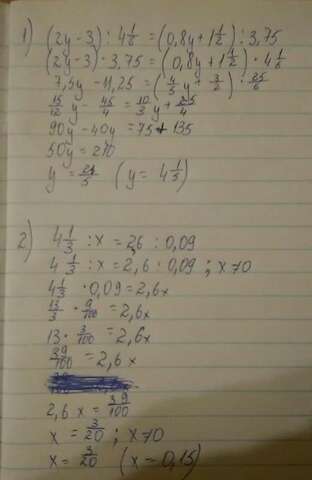 1) (2y-3) : 4 1/6 = (0,8y + 1 1/2) : 3,75
(2y-3) · 3,75 = (0,8y + 1 1/2) · 4 1/6
7,5y - 11,25 = (4/5 y + 3/2) · 25/6
15/2 y - 45/4 = 10/3 y + 25/4
90y - 40y = 75 + 135
50y = 210
y = 21/5 (y = 4 1/5)
2) 4 1/3 : x = 2,6 : 0,09
4 1/3 : x = 2,6 : 0,09 ; x≠0
4 1/3 · 0,09 = 2,6x
13/3 · 9/100 = 2,6x
13 · 3/100 = 2,6x
39/100 = 2,6x
2,6x = 39/100
x = 3/20 ; x≠0
x = 3/20 (x = 0,15)